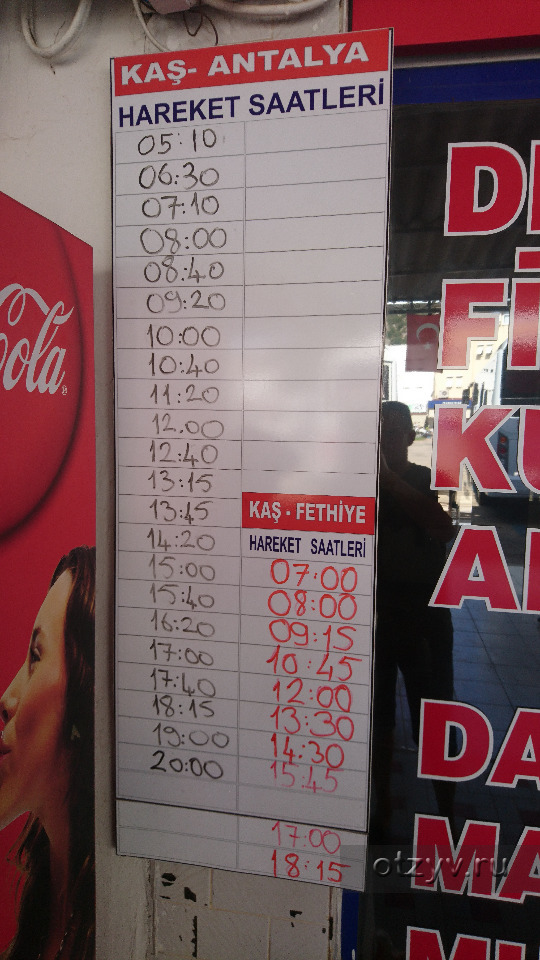 KAŞ- ANTALYA
HAREKET SAATLERİ
05:10
06:30
07:10
08:00
08:40
09:20
10:00
10:40
11:20
12.00
12:40
13:15
13:45
14:20
15:00
15:40
16:20
17:00
17:40
18:15
19:00
20:00
KAŞ - FETHİYE
HAREKET SAATLERİ
07:00
08:00
09:15
10:45
12:00
13:30
14:30
15:45
17:00
18:15
Cola
otzyv.ru